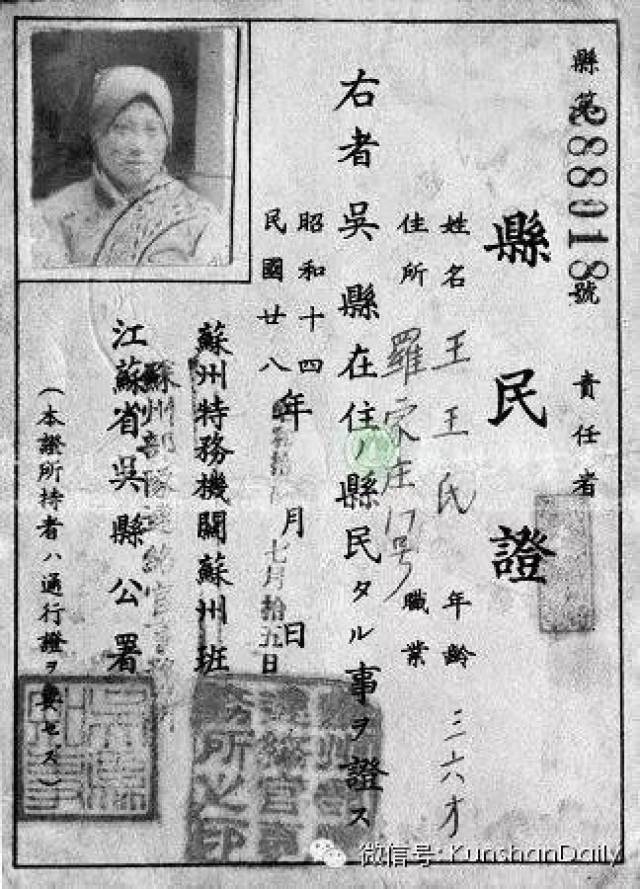 縣第288018號
責任者
縣民證
姓名 王王氏 年齡 三六才
住所 羅宋庄17号 職業
右者吳縣在住ノ縣民タル事ヲ證ス
昭和十四
民國廿八
年 月 日
七月拾五日
蘇州特務機關蘇州班
江蘇省吳縣公署
(本證所持者ハ通行證ヲ要セズ)
微信号: KunshanDaily